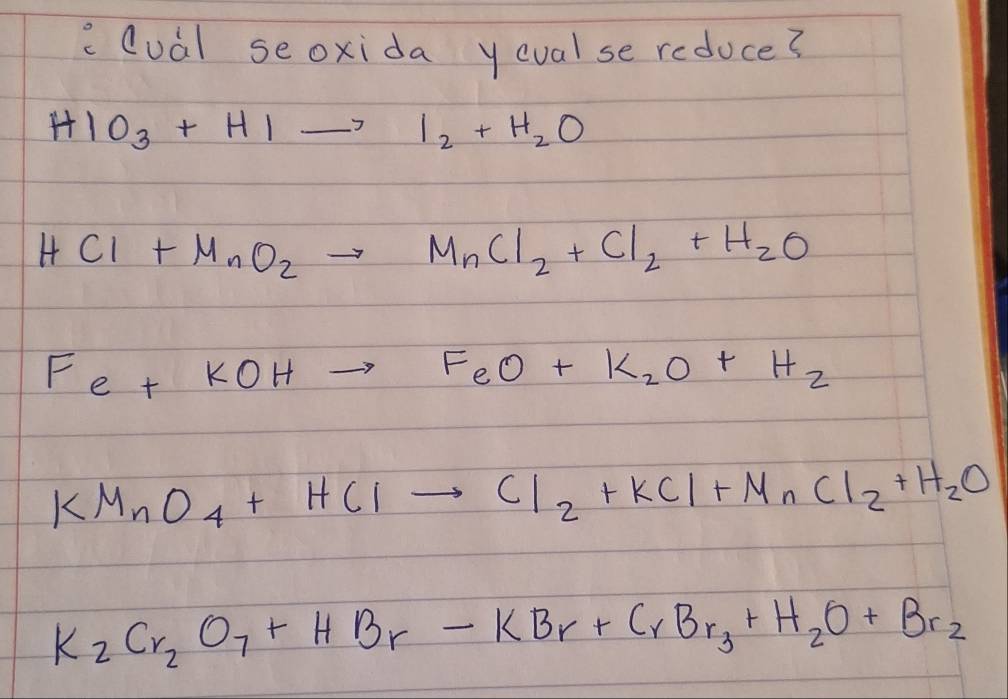 ¿Cuál se oxida y cual se reduce?
HIO₃ + HI → I₂ + H₂O
HCl + MnO₂ → MnCl₂ + Cl₂ + H₂O
Fe + KOH → FeO + K₂O + H₂
KMnO₄ + HCl → Cl₂ + KCl + MnCl₂ + H₂O
K₂Cr₂O₇ + HBr - KBr + CrBr₃ + H₂O + Br₂